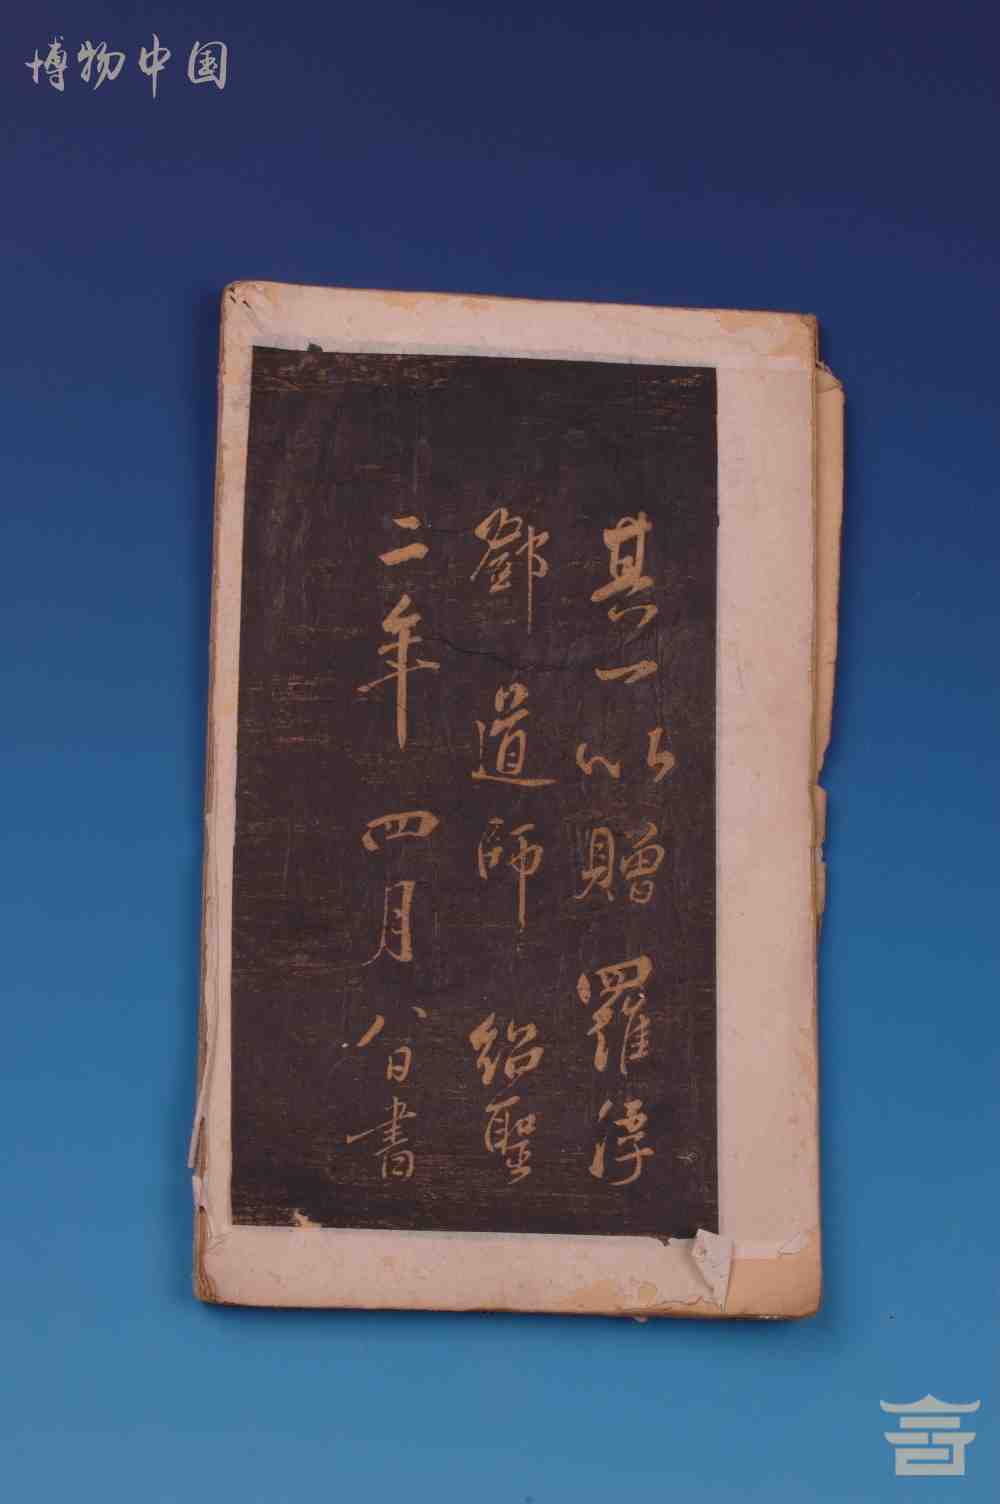 博物中国
其一以贈羅浮
鄧道師紹聖
二年四月八日書